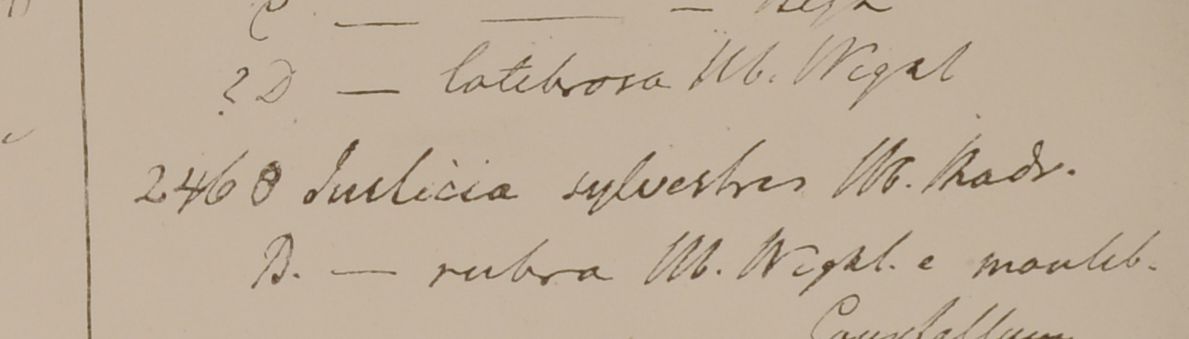 C — — — Heyn
? D — latebrosa Hb. Wight
2468 Justicia sylvestris Hb. Madr.
B. — rubra Hb. Wight. e montib.